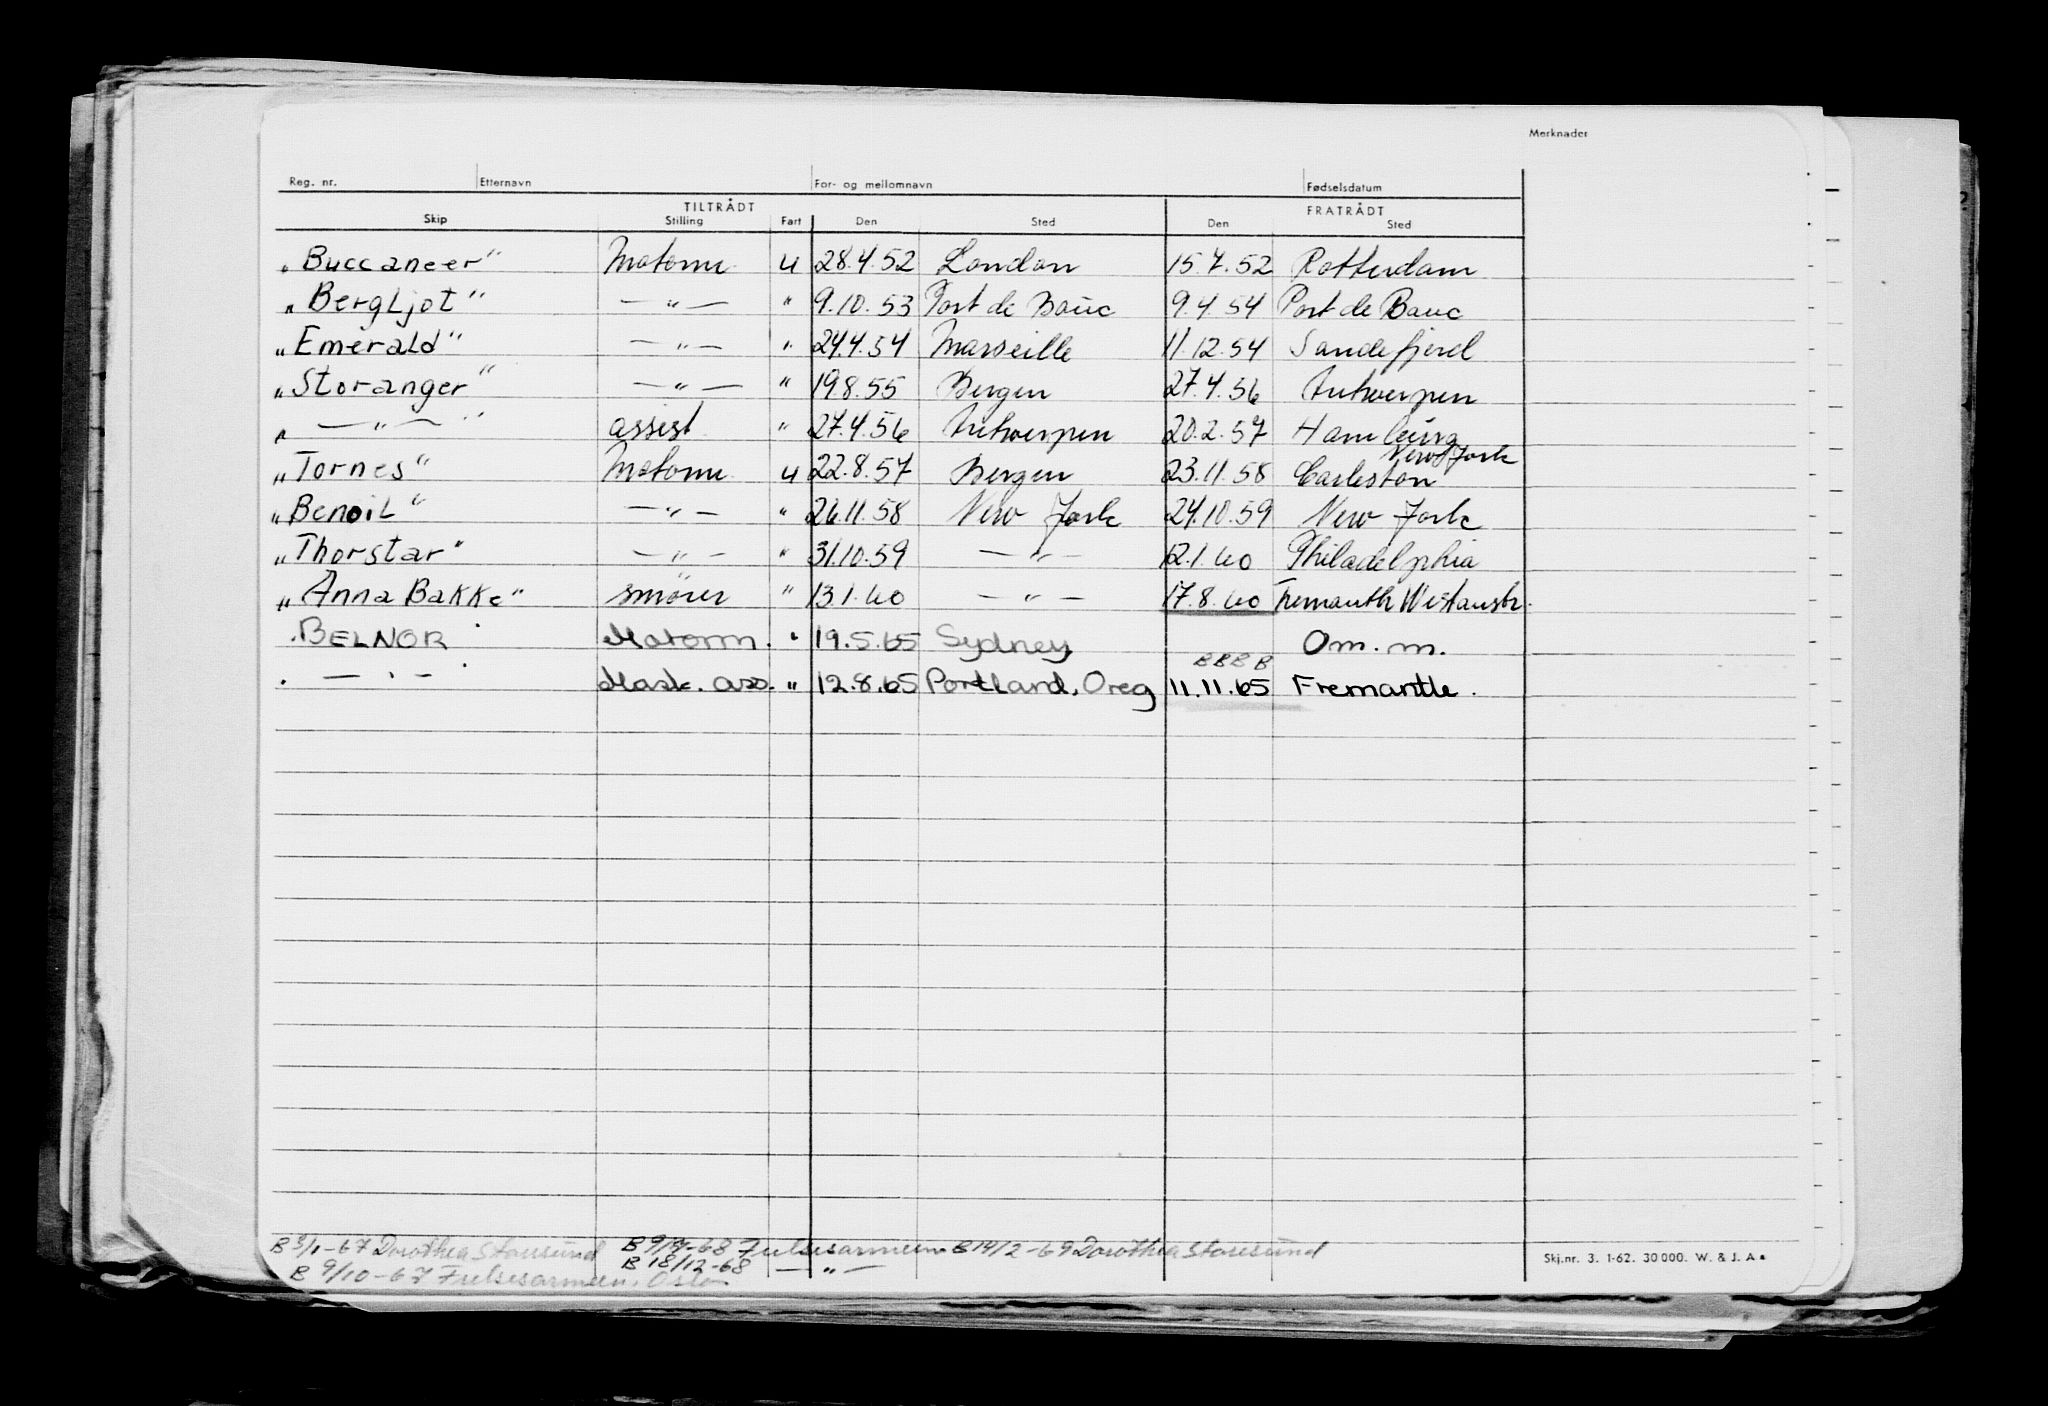 Merknader
Reg. nr. Etternavn For- og mellomnavn Fødselsdatum
TILTRÅDT FRATRÅDT
Skip Stilling Fart Den Sted Den Sted
„Buccaneer" Motorm. u 28.4.52 London 15.7.52 Rotterdam
„Bergljot" — " — " 9.10.53 Port de Bouc 9.4.54 Port de Bouc
„Emerald" — " — " 24.4.54 Marseille 11.12.54 Sandefjord
„Storanger" — " — " 19.8.55 Bergen 27.4.56 Antwerpen
„ — " — " assist " 27.4.56 Antwerpen 20.2.57 Hamburg
New York
„Tornes" Motorm. u 22.8.57 Bergen 23.11.58 Carleston
„Benoil" — " — " 26.11.58 New York 24.10.59 New York
„Thorstar" — " — " 31.10.59 — " — 12.1.60 Philadelphia
„Anna Bakke" smører " 13.1.60 — " — 17.8.60 Fremantle Westaustr.
"BELNOR" Motorm. " 19.5.65 Sydney Om. m.
BBBB
" — " — " Mask. ass. " 12.8.65 Portland, Oreg 11.11.65 Fremantle.
B 3/1-67 Dorothea Storesund B 9/9-68 Frelsesarmeen B 14/2-69 Dorothea Storesund
B 18/12-68 — " —
B 9/10-67 Frelsesarmeen, Oslo
Skj.nr. 3. 1-62. 30 000. W. & J. A.